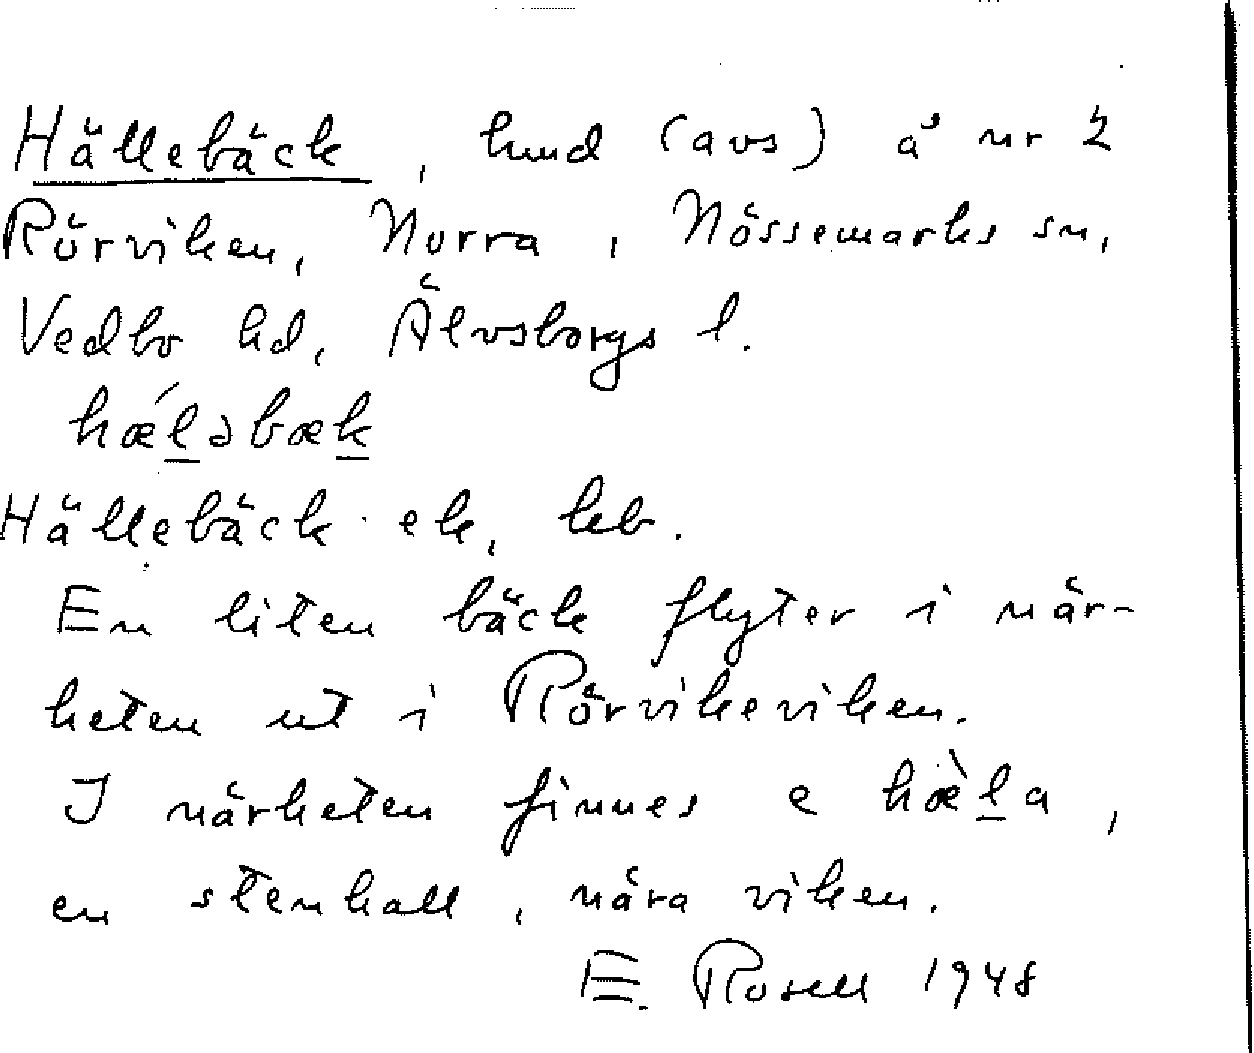 Hällebäck, hmd (avs) å nr 2
Rörviken, Norra, Nössemarks sn,
Vedbo hd, Älvsborgs l.
hǽl̲əbæk̲
Hällebäck ek, kb.
En liten bäck flyter i när-
heten ut i Rörvikeviken.
I närheten finnes e hæ̀l̲a,
en stenhall, nära viken.
E. Rosell 1948